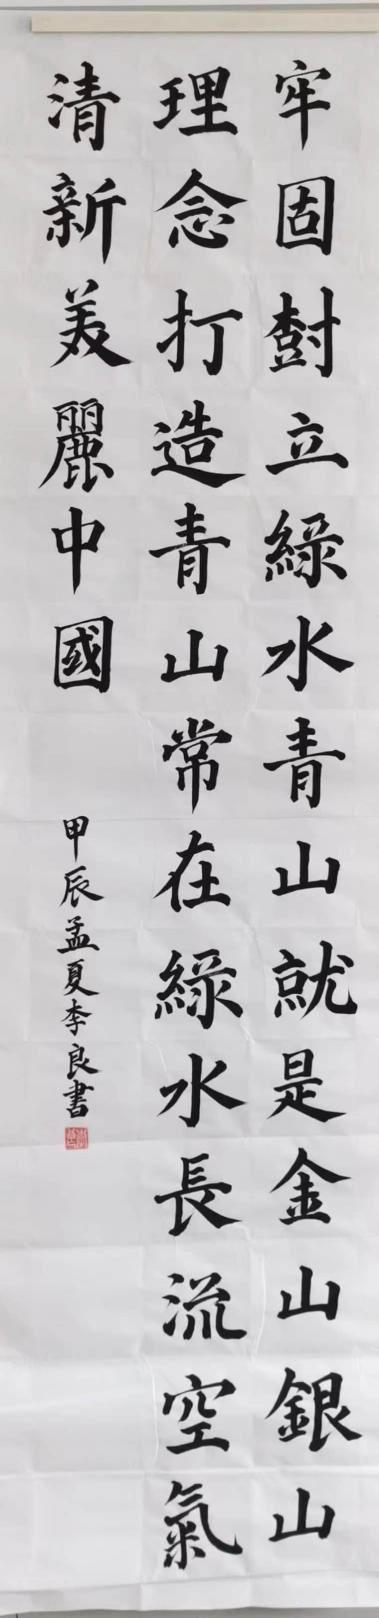 牢固樹立綠水青山就是金山銀山
理念打造青山常在綠水長流空氣
清新美麗中國
甲辰孟夏李良書